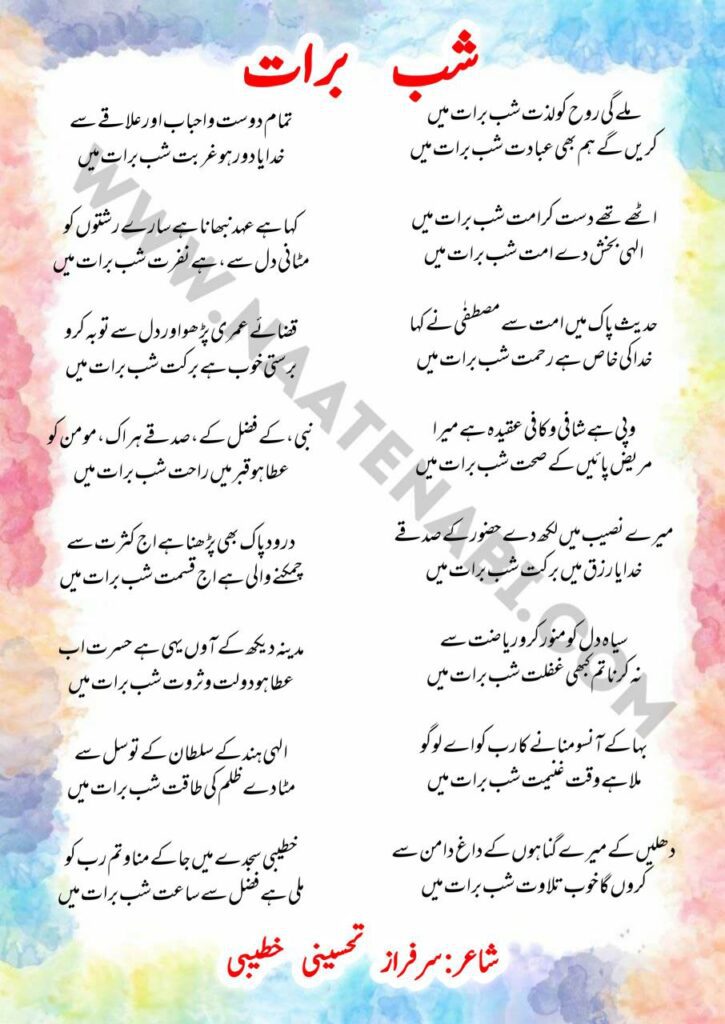 شب برات
ملے گی روح کو لذت شب برات میں
کریں گے ہم بھی عبادت شب برات میں
اٹھے تھے دست کرامت شب برات میں
الہی بخش دے امت شب برات میں
حدیث پاک میں امت سے مصطفٰی نے کہا
خدا کی خاص ہے رحمت شب برات میں
وہی ہے شافی و کافی عقیدہ ہے میرا
مریض پائیں گے صحت شب برات میں
میرے نصیب میں لکھ دے حضور کے صدقے
خدایا رزق میں برکت شب برات میں
سیاہ دل کو منور کرو ریاضت سے
نہ کرنا تم کبھی غفلت شب برات میں
بہا کے آنسو منانے کا رب کو اے لوگو
ملا ہے وقت غنیمت شب برات میں
دھلیں گے میرے گناہوں کے داغ دامن سے
کروں گا خوب تلاوت شب برات میں
تمام دوست و احباب اور علاقے سے
خدایا دور ہو غربت شب برات میں
کہا ہے عہد نبھانا ہے سارے رشتوں کو
مٹانی دل سے ، ہے نفرت شب برات میں
قضائے عمری پڑھو اور دل سے توبہ کرو
برستی خوب ہے برکت شب برات میں
نبی ، کے فضل کے ، صدقے ہر اک ، مومن کو
عطا ہو قبر میں راحت شب برات میں
درود پاک بھی پڑھنا ہے اج کثرت سے
چمکنے والی ہے اج قسمت شب برات میں
مدینہ دیکھ کے آوں یہی ہے حسرت اب
عطا ہو دولت و ثروت شب برات میں
الہی ہند کے سلطان کے توسل سے
مٹا دے ظلم کی طاقت شب برات میں
خطیبی سجدے میں جا کے مناو تم رب کو
ملی ہے فضل سے ساعت شب برات میں
شاعر : سرفراز تحسینی خطیبی
WWW.NAATENABI.COM